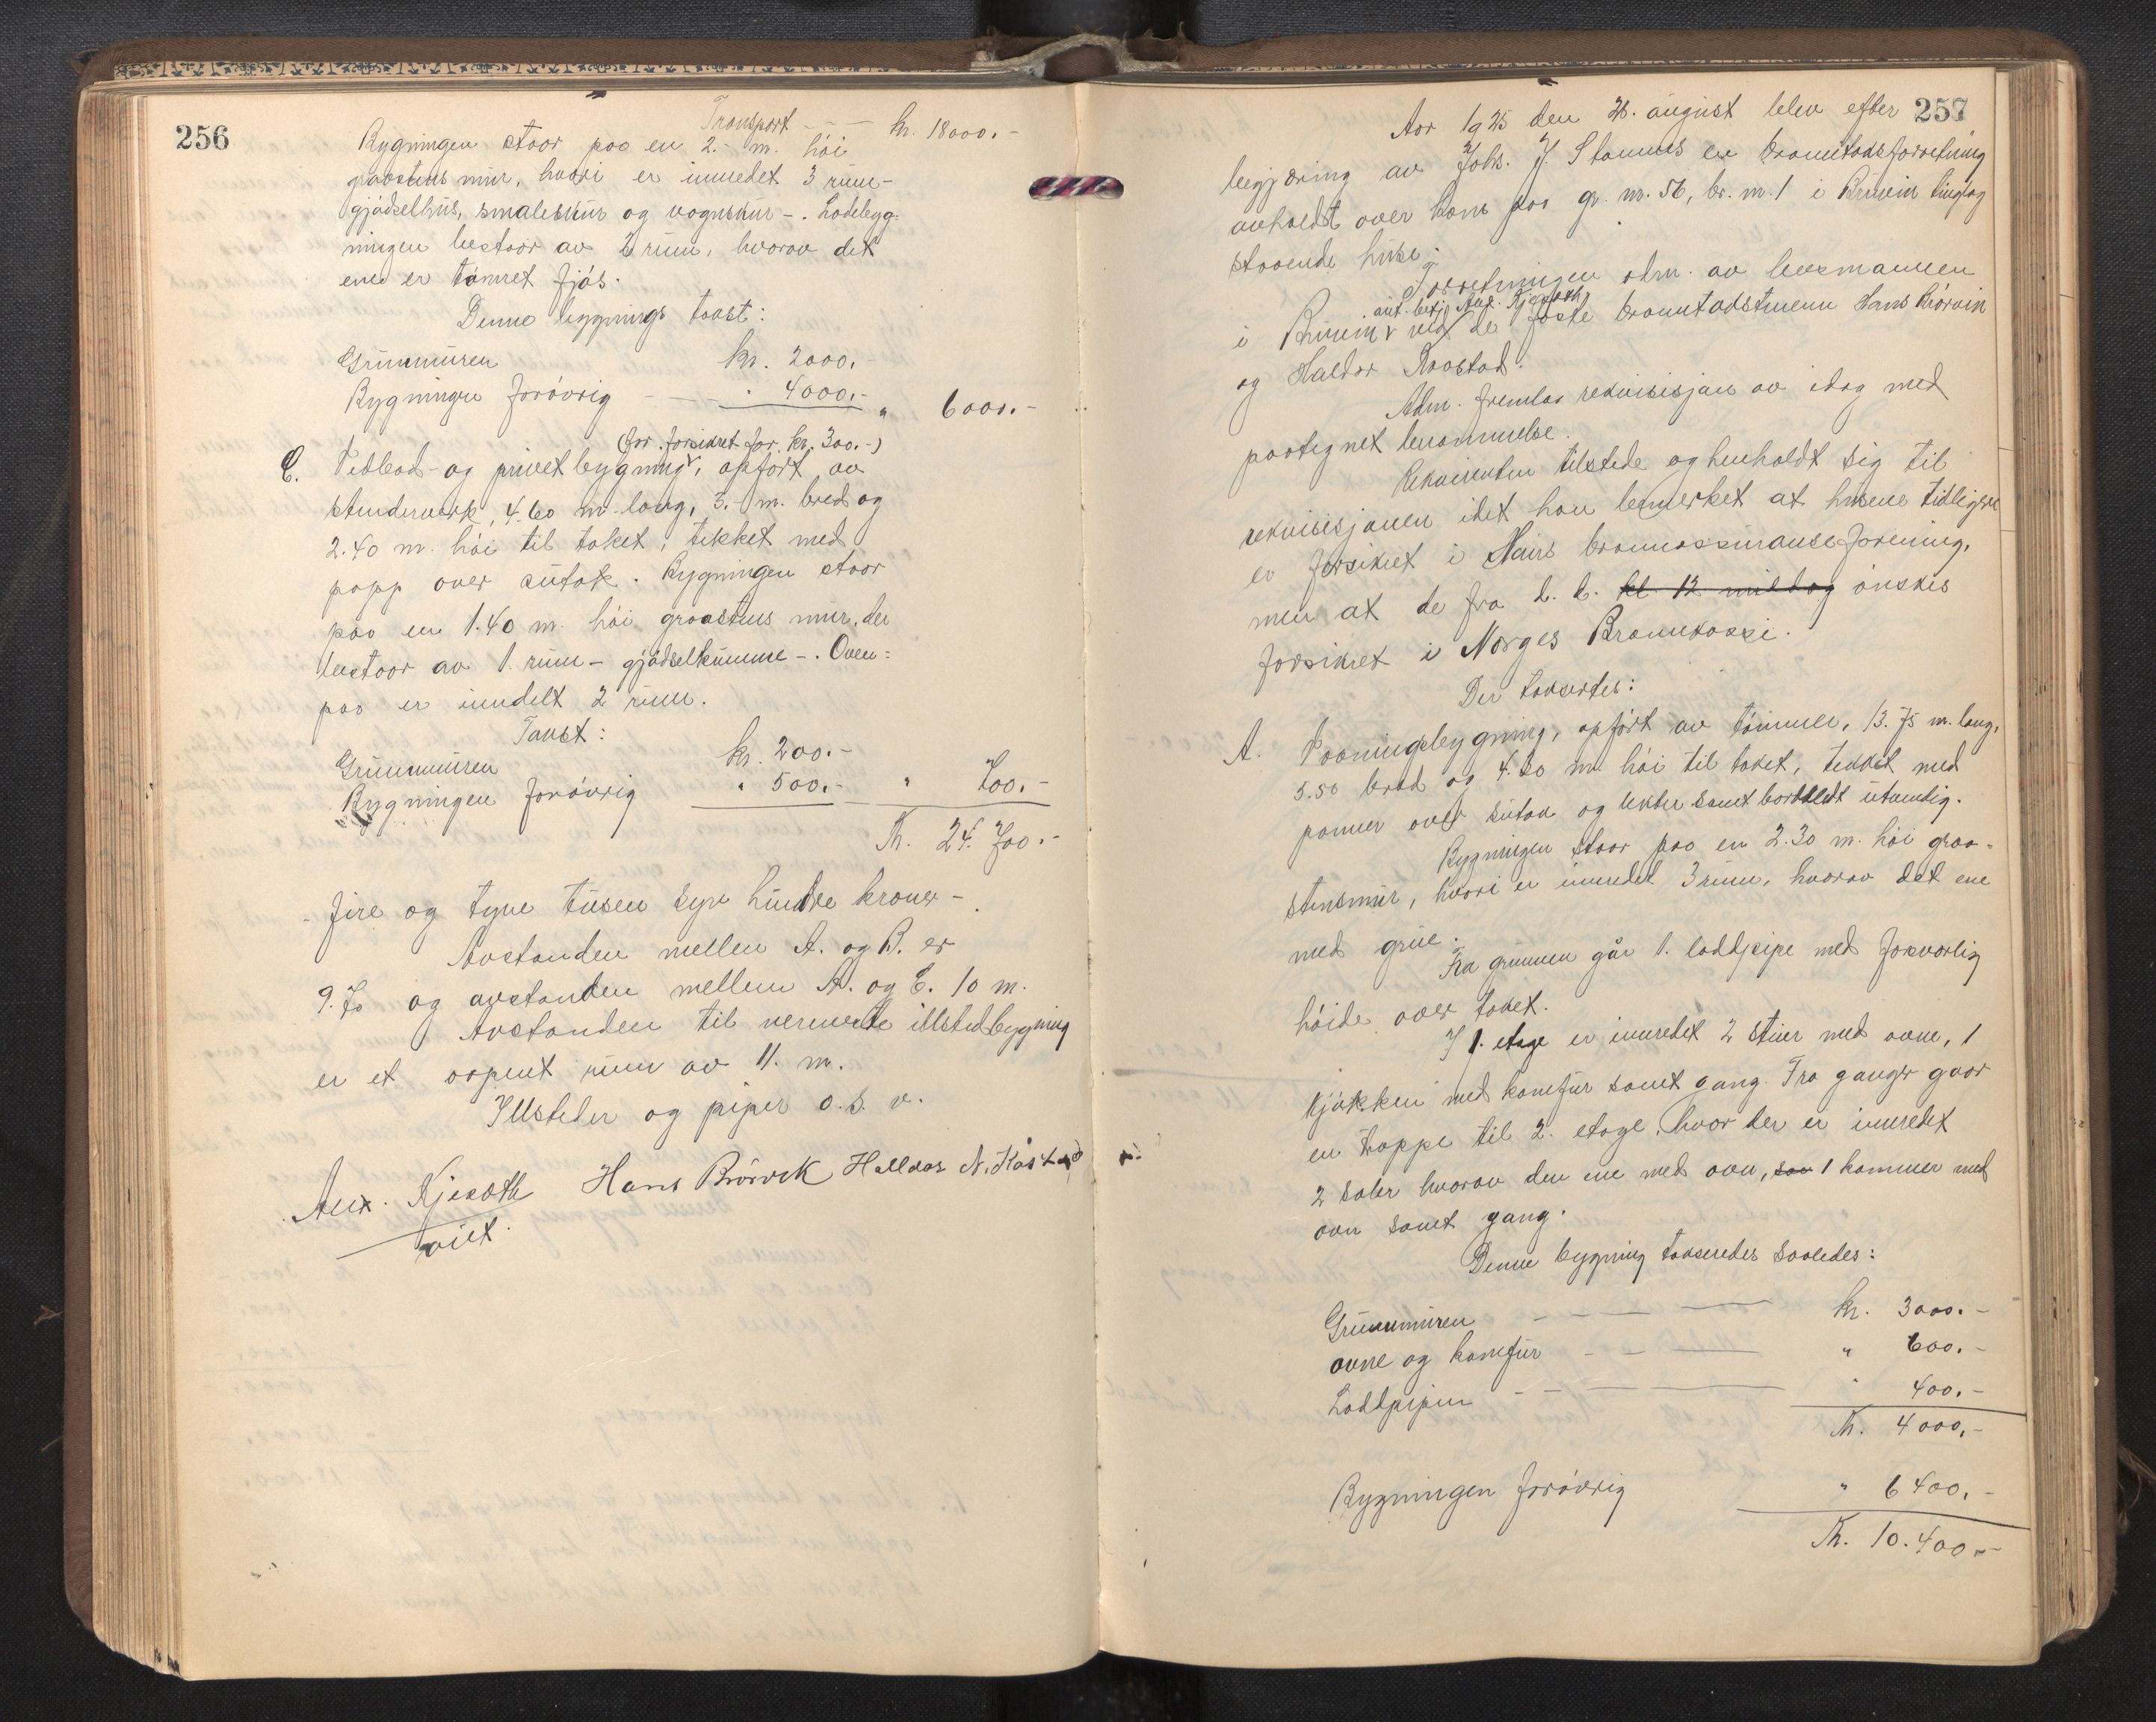 256
Transport — — kr. 18000.-
Bygningen staar paa en 2.- m. høi
graastens mur, hvori er innredet 3 rum-
gjødselhus, smaleskur og vognskur -. Lødebygg-
ningen bestaar av 2 rum, hvorav det
ene er tømret fjøs.
Denne bygnings takst:
Grunnmuren kr. 2000.-
Bygningen forøvrig — — " 4000.- " 6000.-
(før forsikret for kr. 300.-)
C. Vedbod- og privetbygning, opført av
stenderverk, 4.60 m. lang, 3.- m. bred og
2.40 m. høi til taket, tekket med
papp over sutak. Bygningen staar
paa en 1.40 m. høi graastens mur, der
bestaar av 1. rum - gjødselkumme -. Oven-
paa er inndelt 2 rum.
Takst:
Grunnmuren kr. 200.-
Bygningen forøvrig " 500.- " 700.-
Kr. 24.700.-
- fire og tyve tusen syv hundre kroner -
Avstanden mellem A. og B. er
9.70 og avstanden mellem A. og C. 10 m.
Avstanden til nermeste illstedbygning
er et aapent rum av 11. m.
Illsteder og piper o.s.v.
Hans Brørvik Halldor N. Råstad
aut.
257
Aar 1925 den 26. august blev efter
begjæring av Johs. J. Stamnes en branntakstforretning
avholdt over hans paa gr. nr. 56, br. nr. 1 i Bruvik tinglag
staaende huse.
Forretningen adm. av lensmannen
i Bruvik ved de faste branntakstmenn Hans Brørvik
og Haldor Raastad.
Adm. fremla rekvisisjon av idag med
paategnet berammelse.
Rekvirenten tilstede og henholdt sig til
rekvisisjonen idet han bemerket at husene tidligere
er forsikret i Haus brannassuranseforening,
men at de fra d. d. kl. 12 middag ønskes
forsikret i Norges Brannkasse.
Der takseres:
A. Vaaningsbygning, opført av tømmer, 13.75 m. lang,
5.50 bred og 4.20 m. høi til taket, tekket med
panner over sutak og lekter samt bordkledt utvendig.
Bygningen staar paa en 2.30 m. høi graa-
stensmur, hvori er innredet 3 rum, hvorav det ene
med grue.
Fra grunnen går 1. loddpipe med forsvarlig
høide over taket.
I 1. etage er innredet 2 stuer med ovne, 1
kjøkken med komfur samt gang. Fra gangen gaar
en trappe til 2. etage, hvor der er innredet
2 saler hvorav den ene med ovn, sam 1 kammer med
ovn samt gang.
Denne bygning takseredes saaledes:
Grunnmuren — — — kr. 3000.-
ovne og komfur — — — " 600.-
Loddpipen — — — " 400.-
Kr. 4000.-
Bygningen forøvrig " 6400.-
Kr. 10.400.-